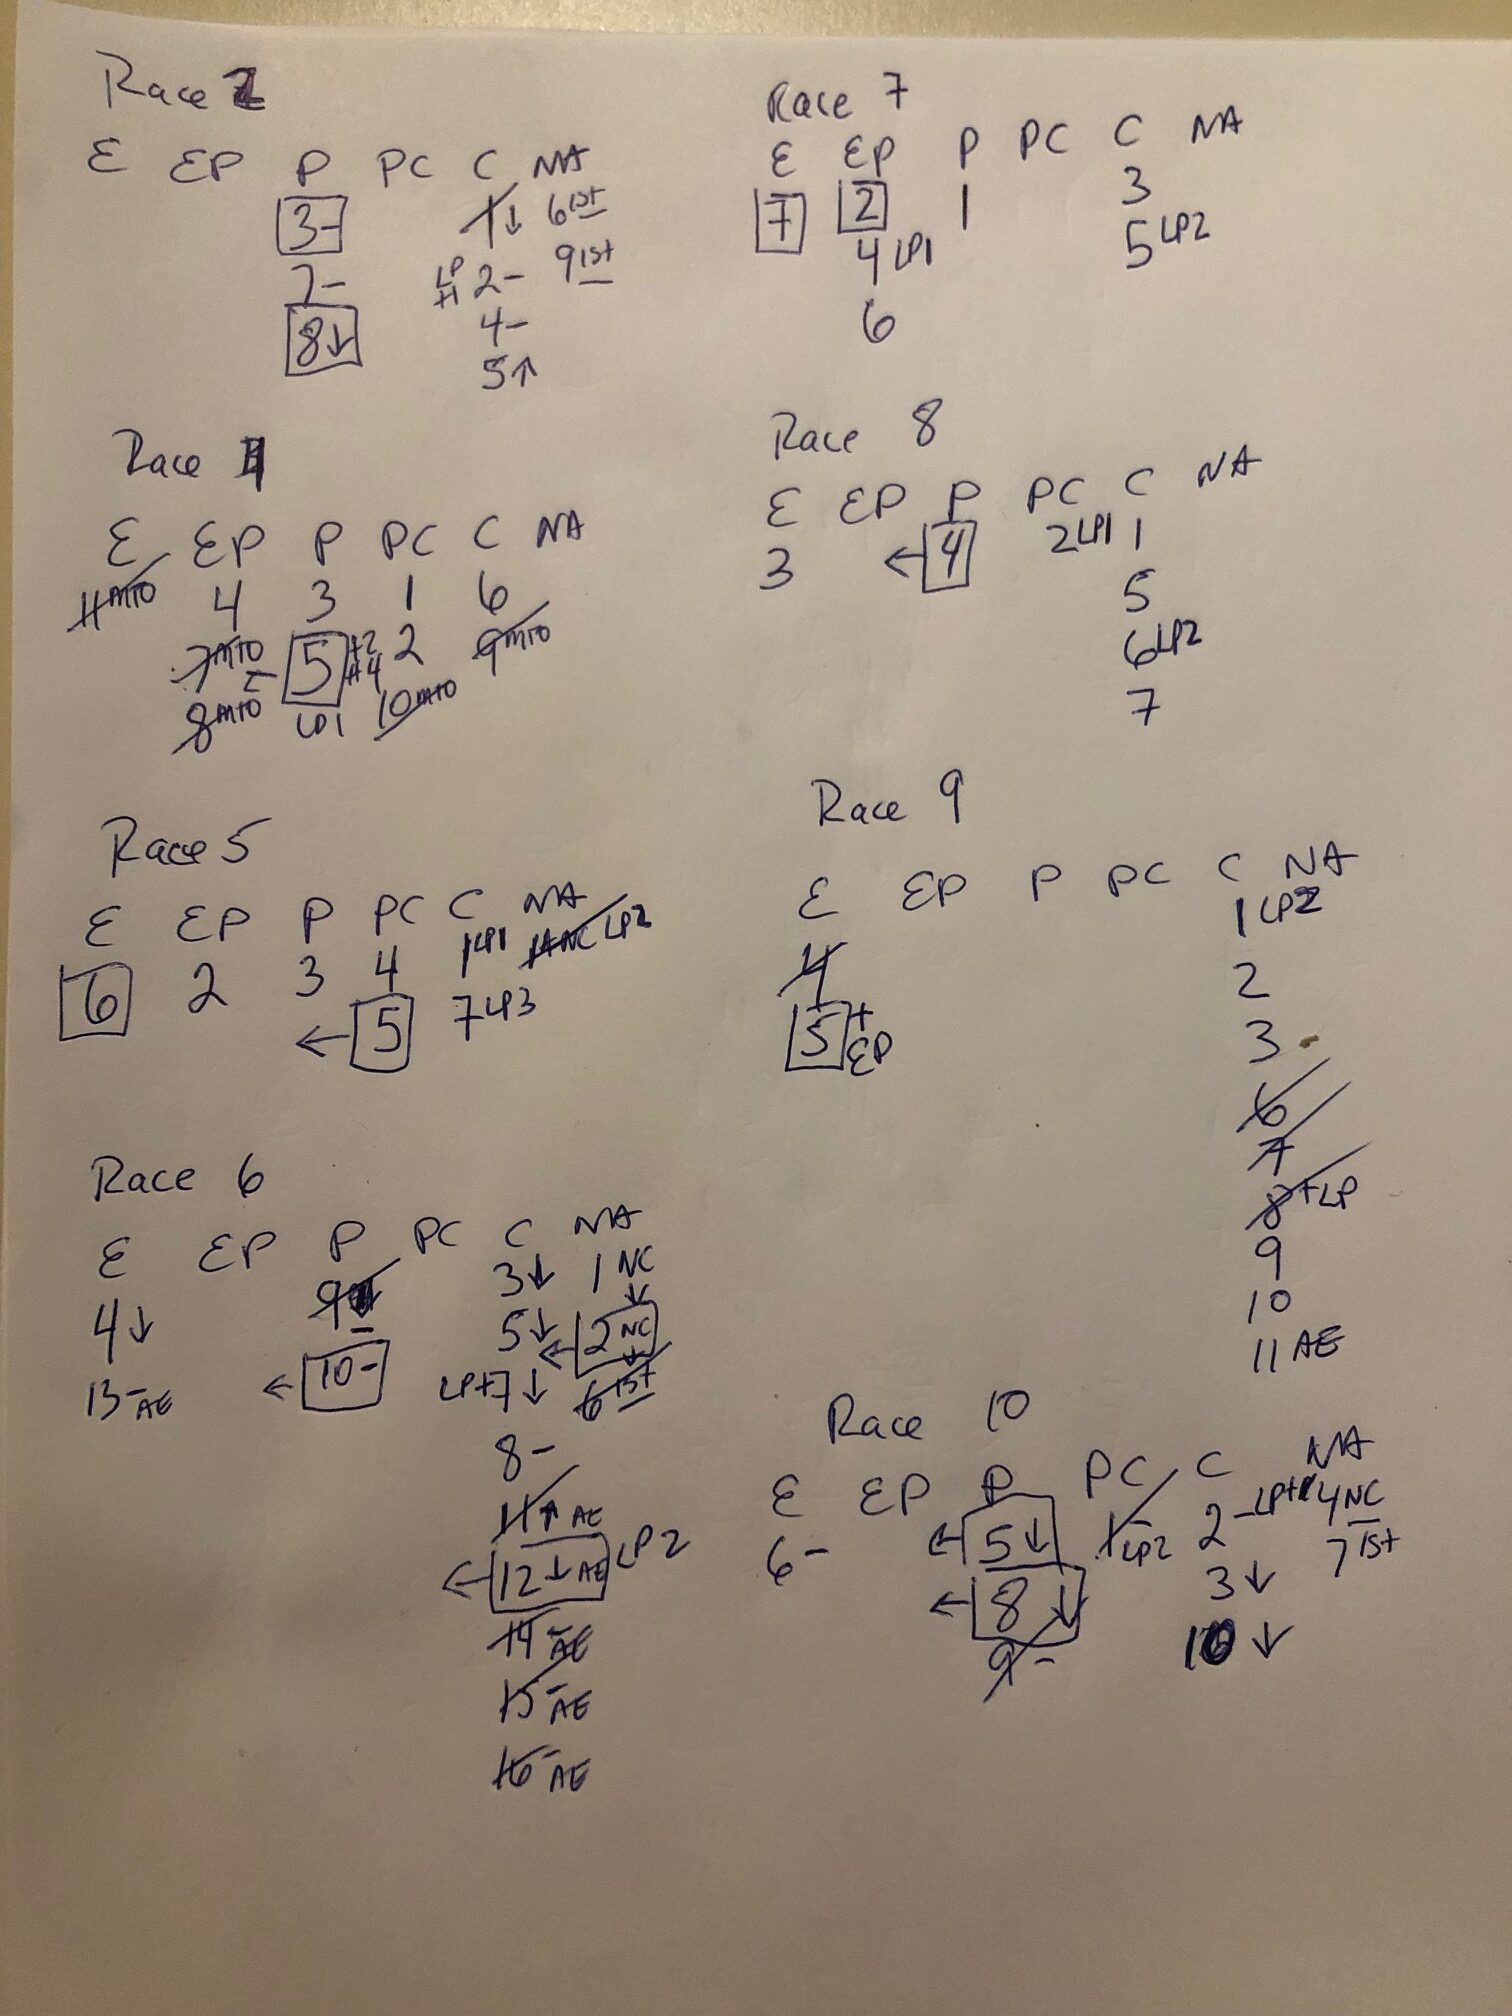 Race 2
E EP P PC C NA
3- 1↓ 6 1st
7- LP +1 2- 9 1st
8↓ 4-
5↑
Race 4
E EP P PC C NA
11 MTO 4 3 1 6
7 MTO 5 +2 +4 2 9 MTO
8 MTO LP1 10 MTO
Race 5
E EP P PC C NA
6 2 3 4 1 LP1 1A NC LP2
← 5 7 LP3
Race 6
E EP P PC C NA
4↓ 9 - 3↓ 1 NC ↓
13- AE ← 10- 5↓ ← 2 NC
LP+ 7↓ 6 1st
8-
11↑ AE
← 12↓ AE LP2
14- AE
15- AE
16- AE
Race 7
E EP P PC C NA
7 2 1 3
4 LP1 5 LP2
6
Race 8
E EP P PC C NA
3 ← 4 2 LP1 1
5
6 LP2
7
Race 9
E EP P PC C NA
4 1 LP2
5 + EP 2
3
6
7
8 + LP
9
10
11 AE
Race 10
E EP P PC C NA
6- ← 5↓ 1- LP2 2- LP+ 4 NC
← 8↓ 3↓ 7 1st
9- 10↓